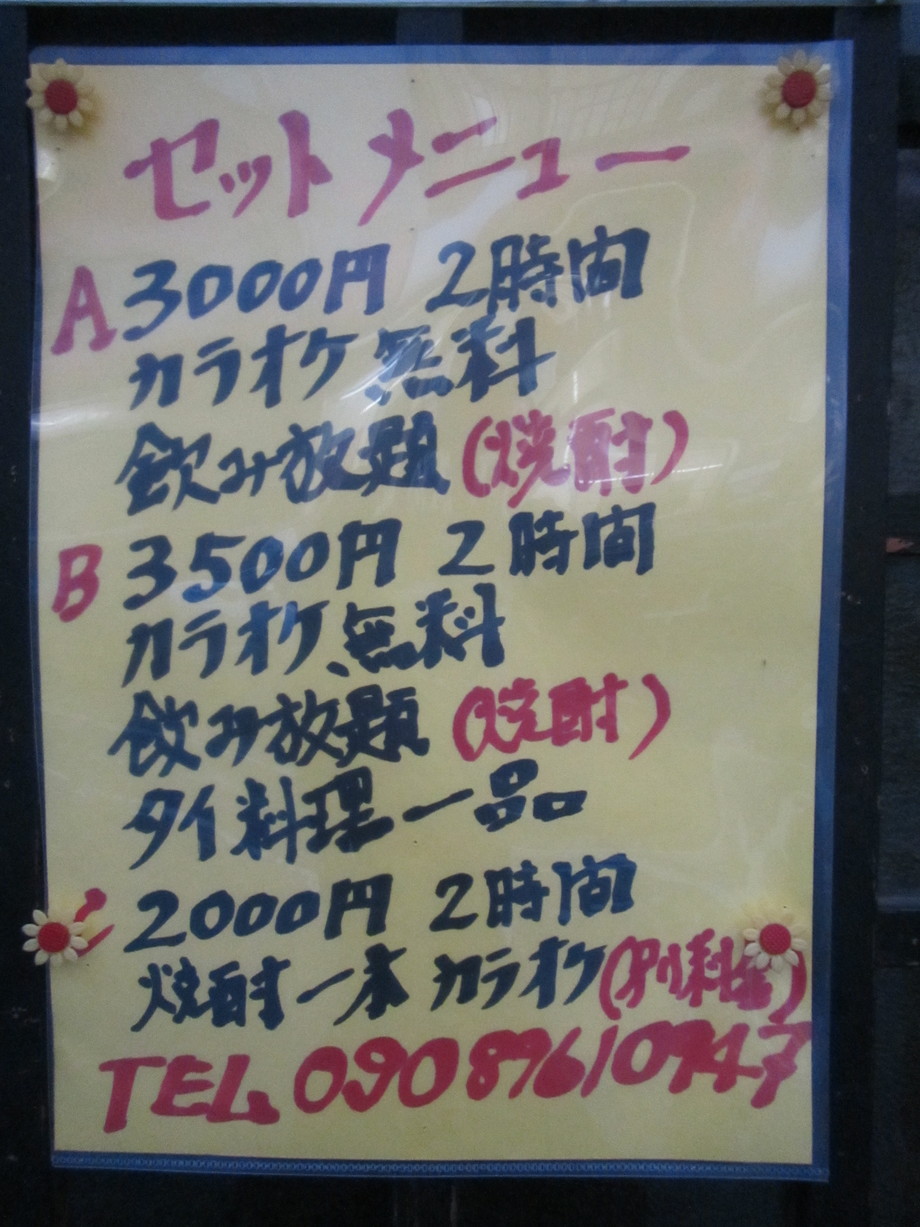 セットメニュー
A 3000円 2時間
カラオケ無料
飲み放題(焼酎)
B 3500円 2時間
カラオケ無料
飲み放題(焼酎)
タイ料理一品
C 2000円 2時間
焼酎一本 カラオケ(別料金)
TEL